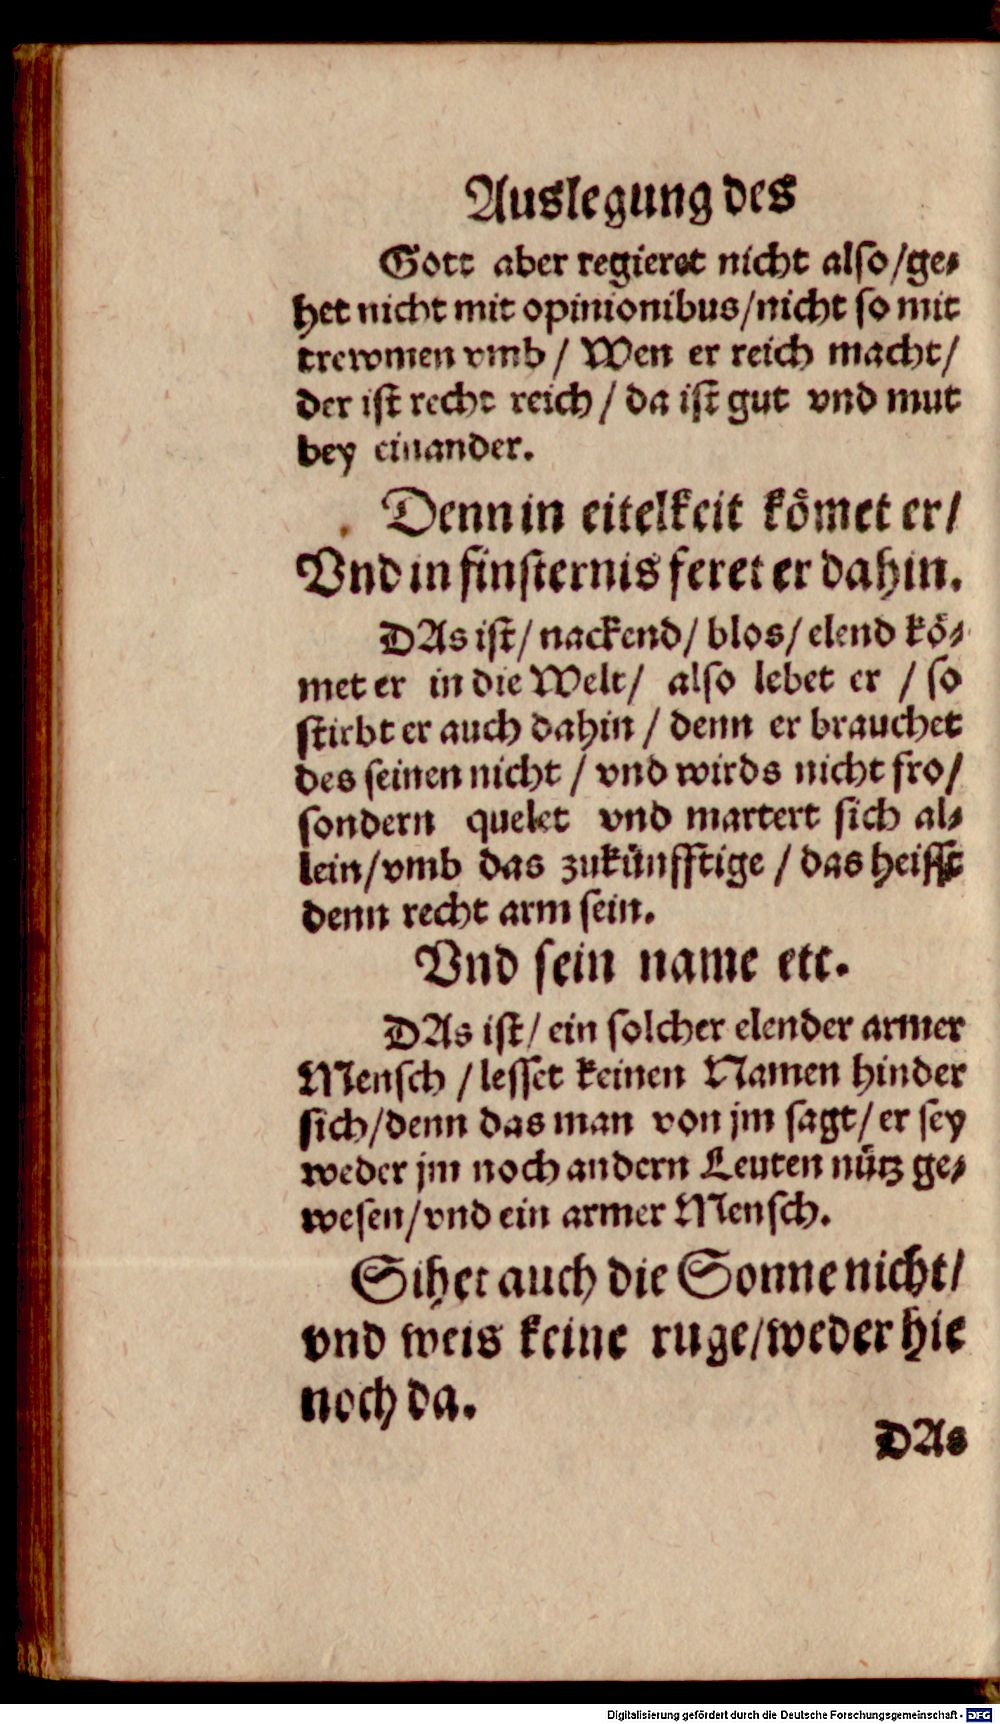 Auslegung des
Gott aber regieret nicht also/ge⸗
het nicht mit opinionibus/nicht so mit
trewmen vmb / Wen er reich macht/
der ist recht reich / da ist gut vnd mut
bey einander.
Denn in eitelkeit kömet er/
Vnd in finsternis feret er dahin.
DAs ist/ nackend/ blos/ elend kö⸗
met er in die Welt/ also lebet er / so
stirbt er auch dahin / denn er brauchet
des seinen nicht / vnd wirds nicht fro/
sondern quelet vnd martert sich al⸗
lein/vmb das zukünfftige / das heisst
denn recht arm sein.
Vnd sein name etc.
DAs ist/ ein solcher elender armer
Mensch / lesset keinen Namen hinder
sich/denn das man von jm sagt/ er sey
weder jm noch andern Leuten nütz ge⸗
wesen/vnd ein armer Mensch.
Sihet auch die Sonne nicht/
vnd weis keine ruge/weder hie
noch da.
DAs
Digitalisierung gefördert durch die Deutsche Forschungsgemeinschaft - DFG